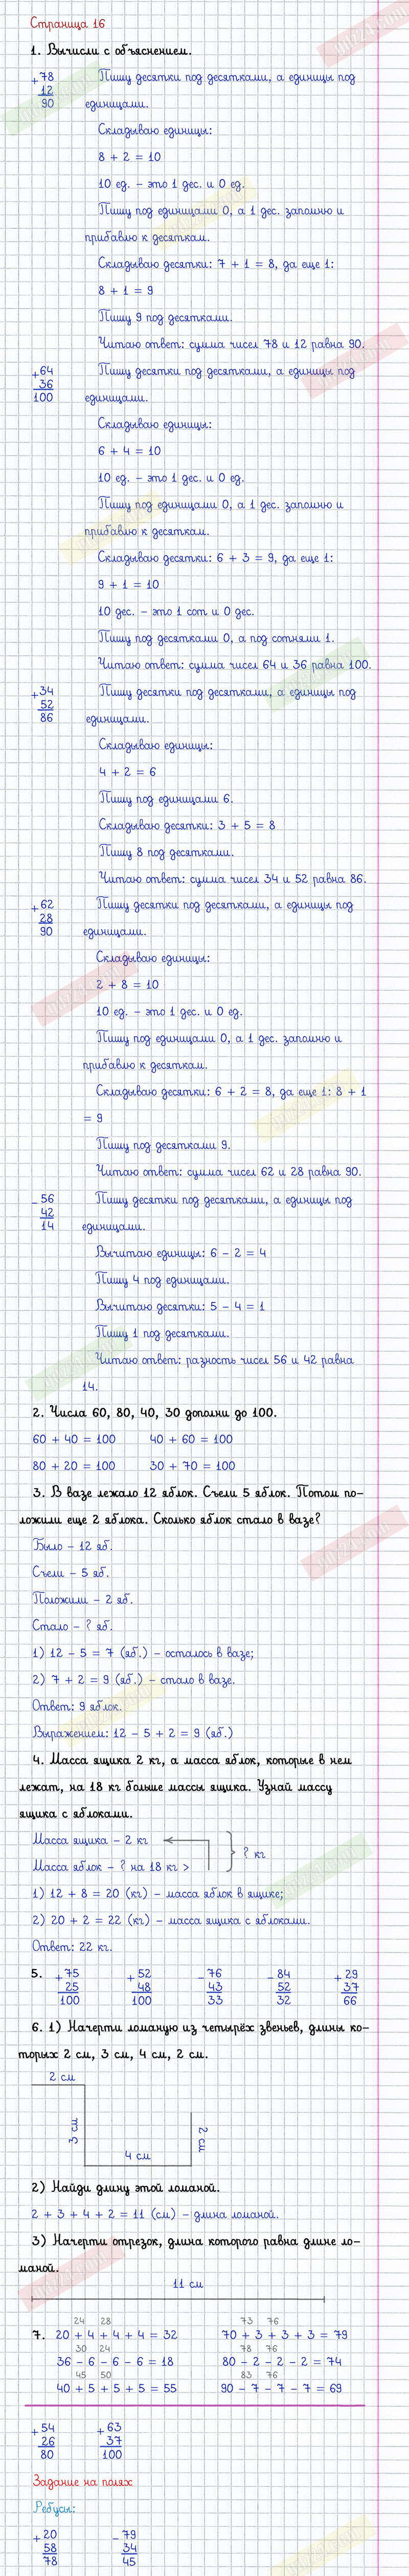 Страница 16
1. Вычисли с объяснением.
+78
12
90
Пишу десятки под десятками, а единицы под
единицами.
Складываю единицы:
8 + 2 = 10
10 ед. – это 1 дес. и 0 ед.
Пишу под единицами 0, а 1 дес. запомню и
прибавлю к десяткам.
Складываю десятки: 7 + 1 = 8, да еще 1:
8 + 1 = 9
Пишу 9 под десятками.
Читаю ответ: сумма чисел 78 и 12 равна 90.
+64
36
100
Пишу десятки под десятками, а единицы под
единицами.
Складываю единицы:
6 + 4 = 10
10 ед. – это 1 дес. и 0 ед.
Пишу под единицами 0, а 1 дес. запомню и
прибавлю к десяткам.
Складываю десятки: 6 + 3 = 9, да еще 1:
9 + 1 = 10
10 дес. – это 1 сот и 0 дес.
Пишу под десятками 0, а под сотнями 1.
Читаю ответ: сумма чисел 64 и 36 равна 100.
+34
52
86
Пишу десятки под десятками, а единицы под
единицами.
Складываю единицы:
4 + 2 = 6
Пишу под единицами 6.
Складываю десятки: 3 + 5 = 8
Пишу 8 под десятками.
Читаю ответ: сумма чисел 34 и 52 равна 86.
+62
28
90
Пишу десятки под десятками, а единицы под
единицами.
Складываю единицы:
2 + 8 = 10
10 ед. – это 1 дес. и 0 ед.
Пишу под единицами 0, а 1 дес. запомню и
прибавлю к десяткам.
Складываю десятки: 6 + 2 = 8, да еще 1: 8 + 1
= 9
Пишу под десятками 9.
Читаю ответ: сумма чисел 62 и 28 равна 90.
–56
42
14
Пишу десятки под десятками, а единицы под
единицами.
Вычитаю единицы: 6 – 2 = 4
Пишу 4 под единицами.
Вычитаю десятки: 5 – 4 = 1
Пишу 1 под десятками.
Читаю ответ: разность чисел 56 и 42 равна
14.
2. Числа 60, 80, 40, 30 дополни до 100.
60 + 40 = 100 40 + 60 = 100
80 + 20 = 100 30 + 70 = 100
3. В вазе лежало 12 яблок. Съели 5 яблок. Потом по-
ложили еще 2 яблока. Сколько яблок стало в вазе?
Было – 12 яб.
Съели – 5 яб.
Положили – 2 яб.
Стало – ? яб.
1) 12 – 5 = 7 (яб.) – осталось в вазе;
2) 7 + 2 = 9 (яб.) – стало в вазе.
Ответ: 9 яблок.
Выражением: 12 – 5 + 2 = 9 (яб.)
4. Масса ящика 2 кг, а масса яблок, которые в нем
лежат, на 18 кг больше массы ящика. Узнай массу
ящика с яблоками.
Масса ящика – 2 кг
? кг
Масса яблок – ? на 18 кг >
1) 12 + 8 = 20 (кг) – масса яблок в ящике;
2) 20 + 2 = 22 (кг) – масса ящика с яблоками.
Ответ: 22 кг.
5. +75 +52 –76 –84 +29
25 48 43 52 37
100 100 33 32 66
6. 1) Начерти ломаную из четырёх звеньев, длины ко-
торых 2 см, 3 см, 4 см, 2 см.
2 см
3 см
2 см
4 см
2) Найди длину этой ломаной.
2 + 3 + 4 + 2 = 11 (см) – длина ломаной.
3) Начерти отрезок, длина которого равна длине ло-
маной.
11 см
24 28 73 76
7. 20 + 4 + 4 + 4 = 32 70 + 3 + 3 + 3 = 79
30 24 78 76
36 – 6 – 6 – 6 = 18 80 – 2 – 2 – 2 = 74
45 50 83 76
40 + 5 + 5 + 5 = 55 90 – 7 – 7 – 7 = 69
+54 +63
26 37
80 100
Задание на полях
Ребусы:
+20 –79
58 34
78 45